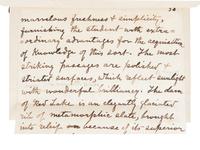 30
marvelous freshness & simplicity,
furnishing the student with extra=
ordinary advantages for the acquisition
of knowledge of this sort. The most
striking passages are polished &
striated surfaces, which reflect sunlight
with wonderful brilliancy. The dam
of Red Lake is an elegantly glaciated
rib of metamorphic slate, brought
into relief because of its superior